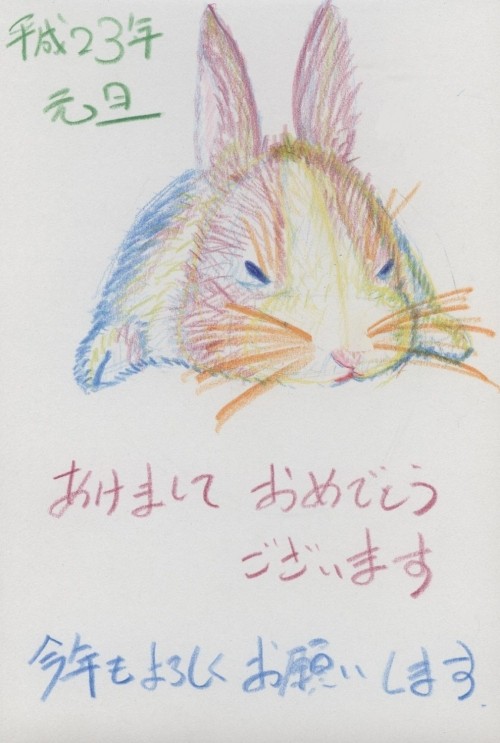 平成23年
元旦
あけまして おめでとう
ございます
今年もよろしく お願いします